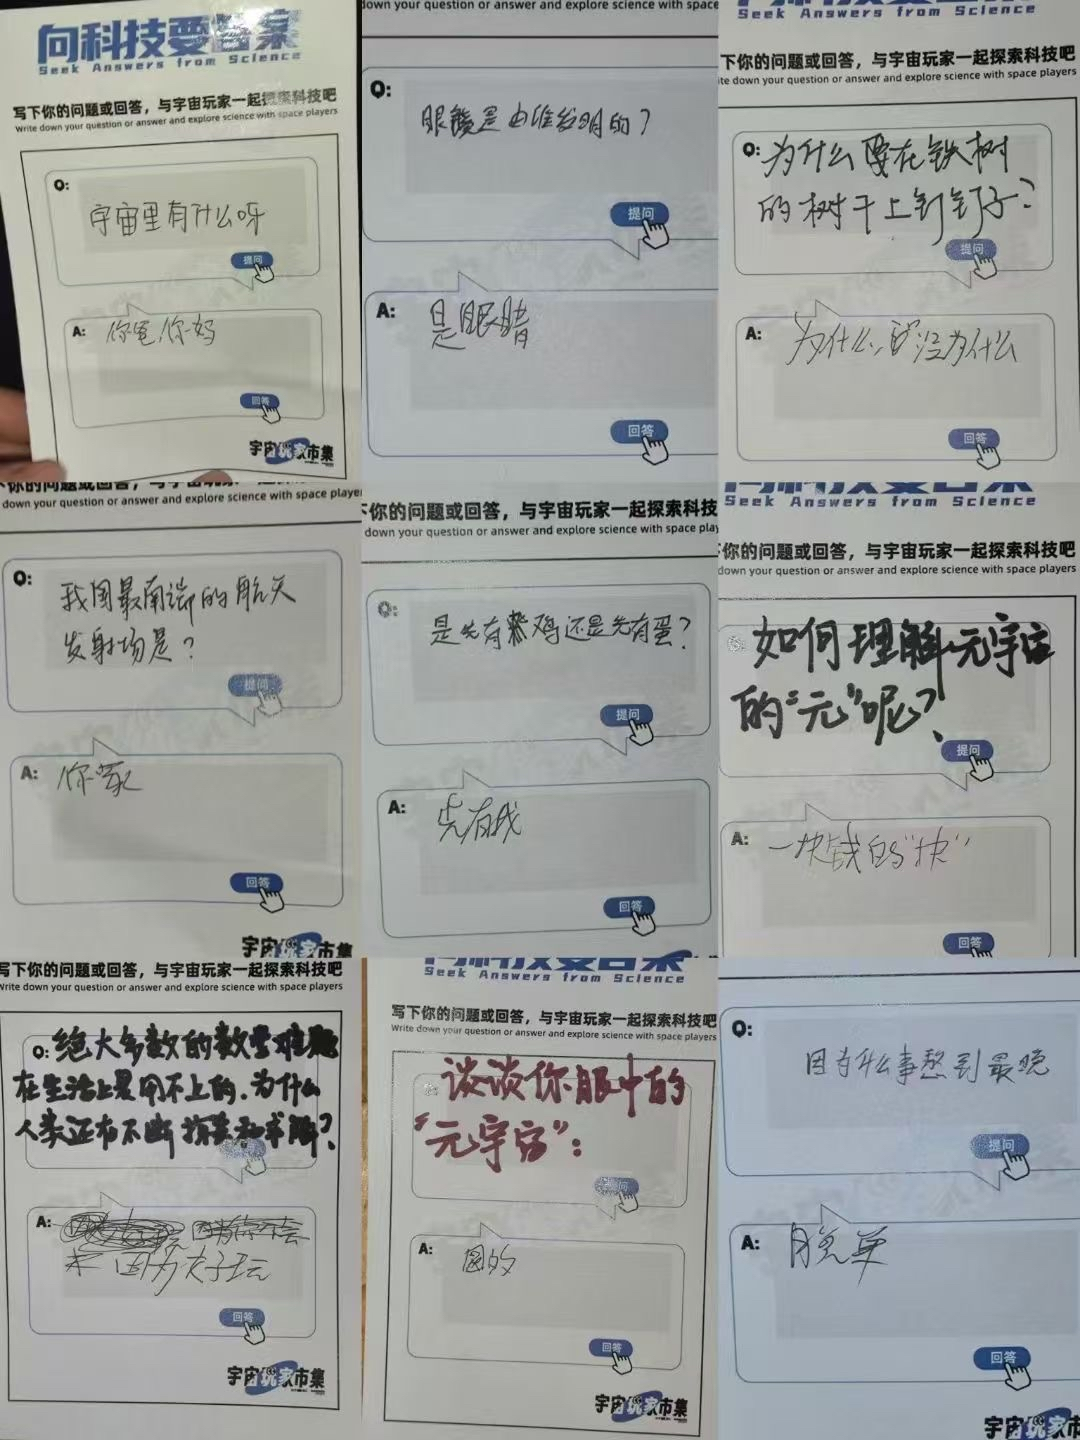 向科技要答案
Seek Answers from Science
写下你的问题或回答，与宇宙玩家一起探索科技吧
Write down your question or answer and explore science with space players
Q:
宇宙里有什么呀
提问
A:
你爸,你妈
回答
宇宙玩家市集
down your question or answer and explore science with space
Q:
眼镜是由谁发明的?
提问
A:
是眼睛
回答
Seek Answers from Science
下你的问题或回答，与宇宙玩家一起探索科技吧
te down your question or answer and explore science with space players
Q:为什么要在铁树
的树干上钉钉子?
提问
A:
为什么,要没为什么
回答
你的问题或回答，与宇宙玩家一起探索科技
down your question or answer and explore science with space playe
Q:
我国最南端的航天
发射场是?
提问
A:
你家
回答
宇宙玩家市集
下你的问题或回答，与宇宙玩家一起探索科技
down your question or answer and explore science with space play
Q:
是先有鸡还是先有蛋?
提问
A:
先有我
回答
向科技要答案
Seek Answers from Science
下你的问题或回答，与宇宙玩家一起探索科技吧
down your question or answer and explore science with space players
如何理解元宇宙
的"元"呢?
提问
A:
一块钱的"块"
回答
写下你的问题或回答，与宇宙玩家一起探索科技吧
Write down your question or answer and explore science with space players
Q:绝大多数的数学难题
在生活上是用不上的,为什么
人类还在不断探索和求解?
A:
因为
回答
宇宙玩家市集
向科技要答案
Seek Answers from Science
写下你的问题或回答，与宇宙玩家一起探索科技吧
Write down your question or answer and explore science with space players
谈谈你眼中的
"元宇宙":
提问
A:
圆的
回答
宇宙玩家市集
Q:
因为什么事熬到最晚
提问
A:
月兔草
回答
宇宙玩家市